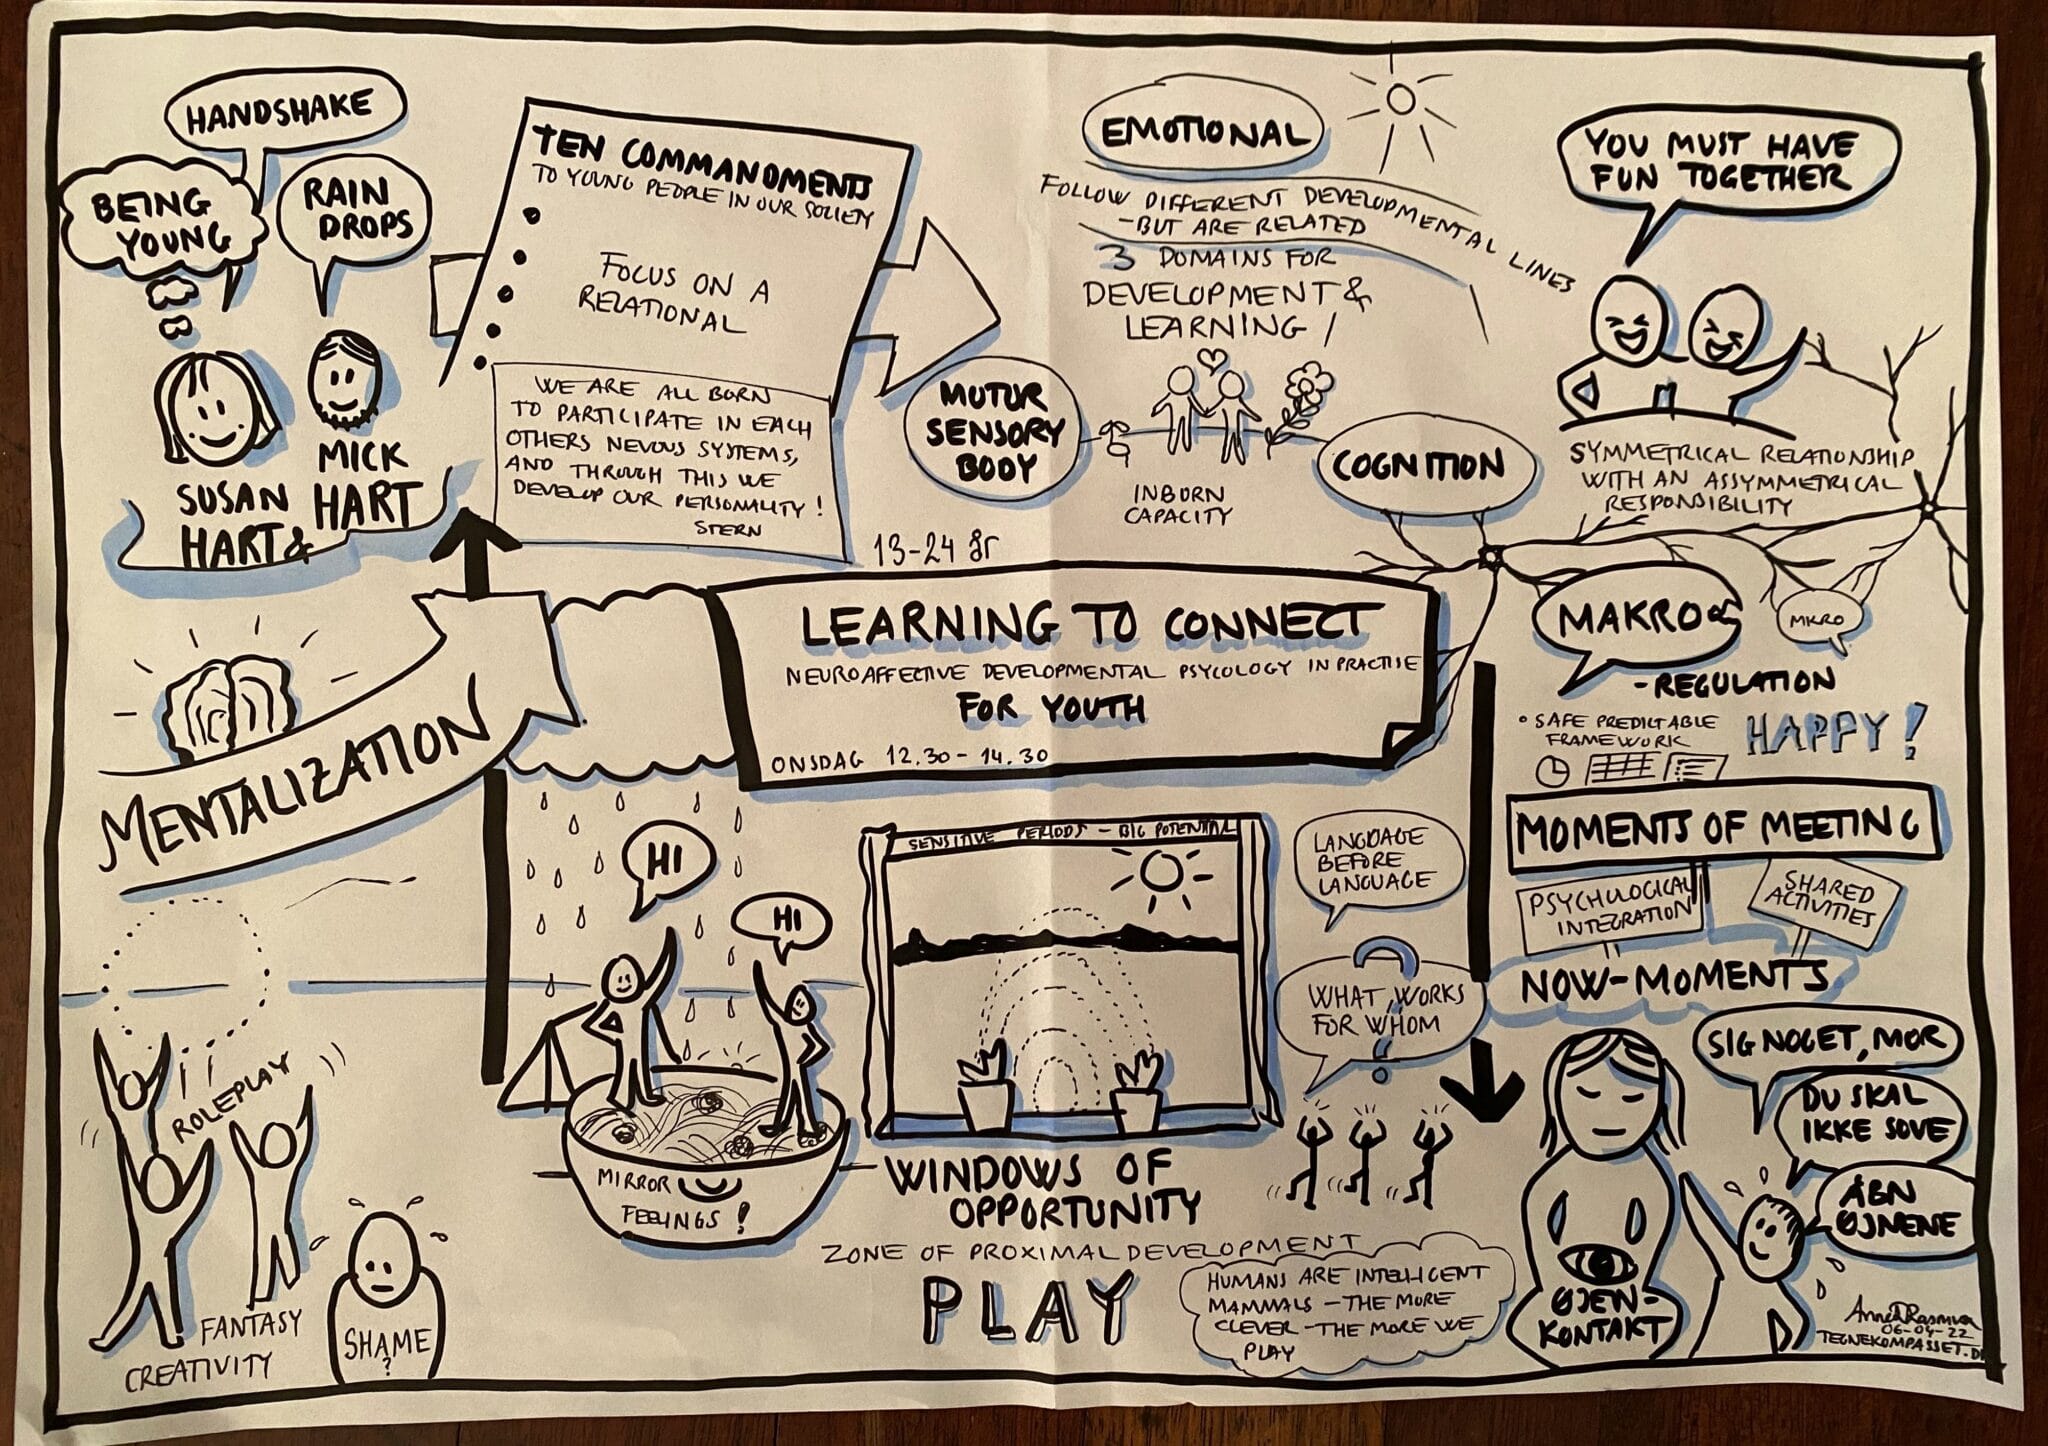 HANDSHAKE
BEING
YOUNG
RAIN
DROPS
SUSAN
HART &
MICK
HART
TEN COMMANDMENTS
TO YOUNG PEOPLE IN OUR SOCIETY
FOCUS ON A
RELATIONAL
WE ARE ALL BORN
TO PARTICIPATE IN EACH
OTHERS NEVOUS SYSTEMS,
AND THROUGH THIS WE
DEVELOP OUR PERSONALITY!
STERN
EMOTIONAL
FOLLOW DIFFERENT DEVELOPMENTAL LINES
-BUT ARE RELATED
3 DOMAINS FOR
DEVELOPMENT &
LEARNING
MOTOR
SENSORY
BODY
COGNITION
INBORN
CAPACITY
YOU MUST HAVE
FUN TOGETHER
SYMMETRICAL RELATIONSHIP
WITH AN ASSYMMETRICAL
RESPONSIBILITY
13-24 år
LEARNING TO CONNECT
NEUROAFFECTIVE DEVELOPMENTAL PSYCOLOGY IN PRACTISE
FOR YOUTH
ONSDAG 12.30 - 14.30
MAKRO
MKRO
-REGULATION
• SAFE PREDICTABLE
FRAMEWORK
HAPPY!
MENTALIZATION
MOMENTS OF MEETING
PSYCHOLOGICAL
INTEGRATION
SHARED
ACTIVITIES
NOW-MOMENTS
HI
HI
SENSITIVE PERIODS - BIG POTENTIAL
LANGUAGE
BEFORE
LANGUAGE
WHAT WORKS
FOR WHOM
ROLEPLAY
FANTASY
CREATIVITY
SHAME
?
MIRROR
FEELINGS!
WINDOWS OF
OPPORTUNITY
ZONE OF PROXIMAL DEVELOPMENT
PLAY
HUMANS ARE INTELLIGENT
MAMMALS - THE MORE
CLEVER - THE MORE WE
PLAY
SIG NOGET, MOR
DU SKAL
IKKE SOVE
ÅBN
ØJNENE
ØJEN-
KONTAKT
06-04-22
TEGNEKOMPASSET.D